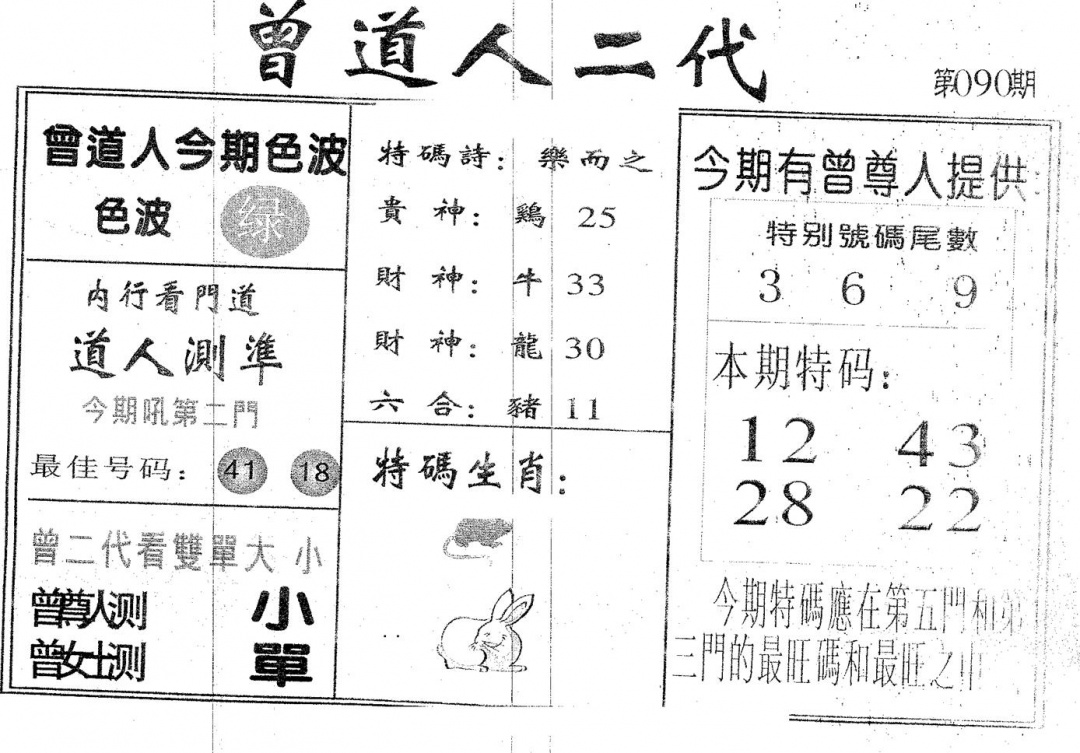 曾道人二代
第090期
曾道人今期色波
色波 绿
内行看門道
道人測準
今期吼第二門
最佳号码： 41 18
曾二代看雙單大 小
曾尊人测 小
曾女士测 單
特碼詩：樂而之
貴神：鷄 25
財神：牛 33
財神：龍 30
六合：豬 11
特碼生肖：
今期有曾尊人提供：
特别號碼尾數
3 6 9
本期特码：
12 43
28 22
今期特碼應在第五門和第
三門的最旺碼和最旺之中